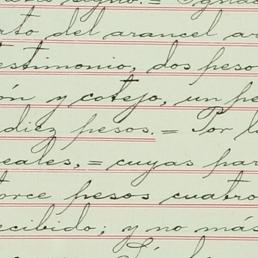 signo. = Ignac
rto del arancel ar
estimonio, dos peso
ón y cotejo, un pe
diez pesos. = Por l
eales, = cuyas par
torce pesos cuatro
ecibido; y no más